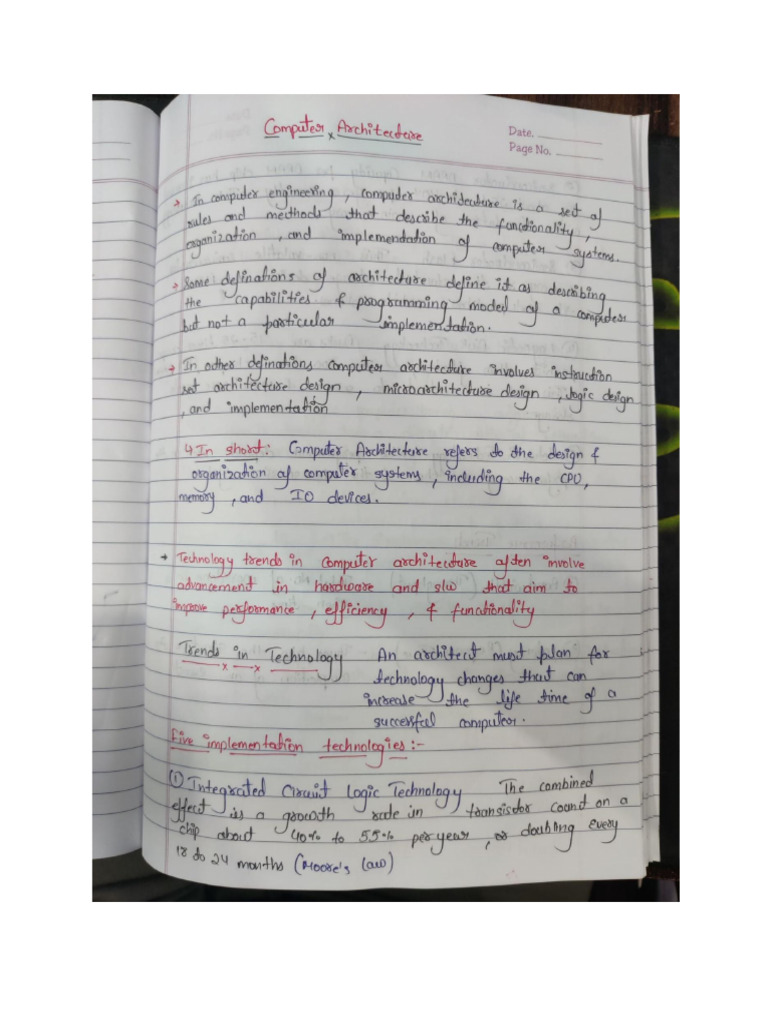 Computer Architecture
Date.
Page No.
→ In computer engineering, computer architecture is a set of
rules and methods that describe the functionality,
organization, and implementation of computer systems.
→ Some definations of architecture define it as describing
the capabilities & programming model of a computer
but not a particular implementation.
→ In other definations computer architecture involves instruction
set architecture design, microarchitecture design, logic design
, and implementation
↳ In short: Computer Architecture refers to the design &
organization of computer systems, including the CPU,
memory, and IO devices.
→ Technology trends in computer architecture often involve
advancement in hardware and s/w that aim to
improve performance, efficiency, & functionality
Trends in Technology An architect must plan for
technology changes that can
increase the life time of a
successful computer.
Five implementation technologies:-
① Integrated Circuit Logic Technology The combined
effect is a growth rate in transistor count on a
chip about 40% to 55% per year, or doubling every
18 to 24 months (Moore's law)